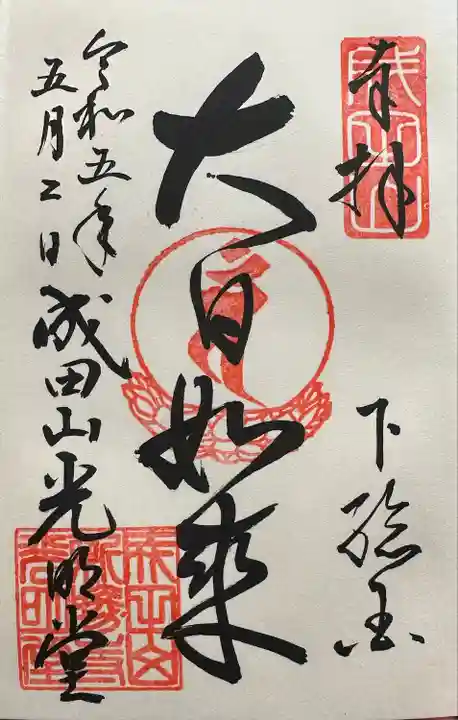 奉拝
下総国
大日如来
令和五年
五月二日
成田山光明堂